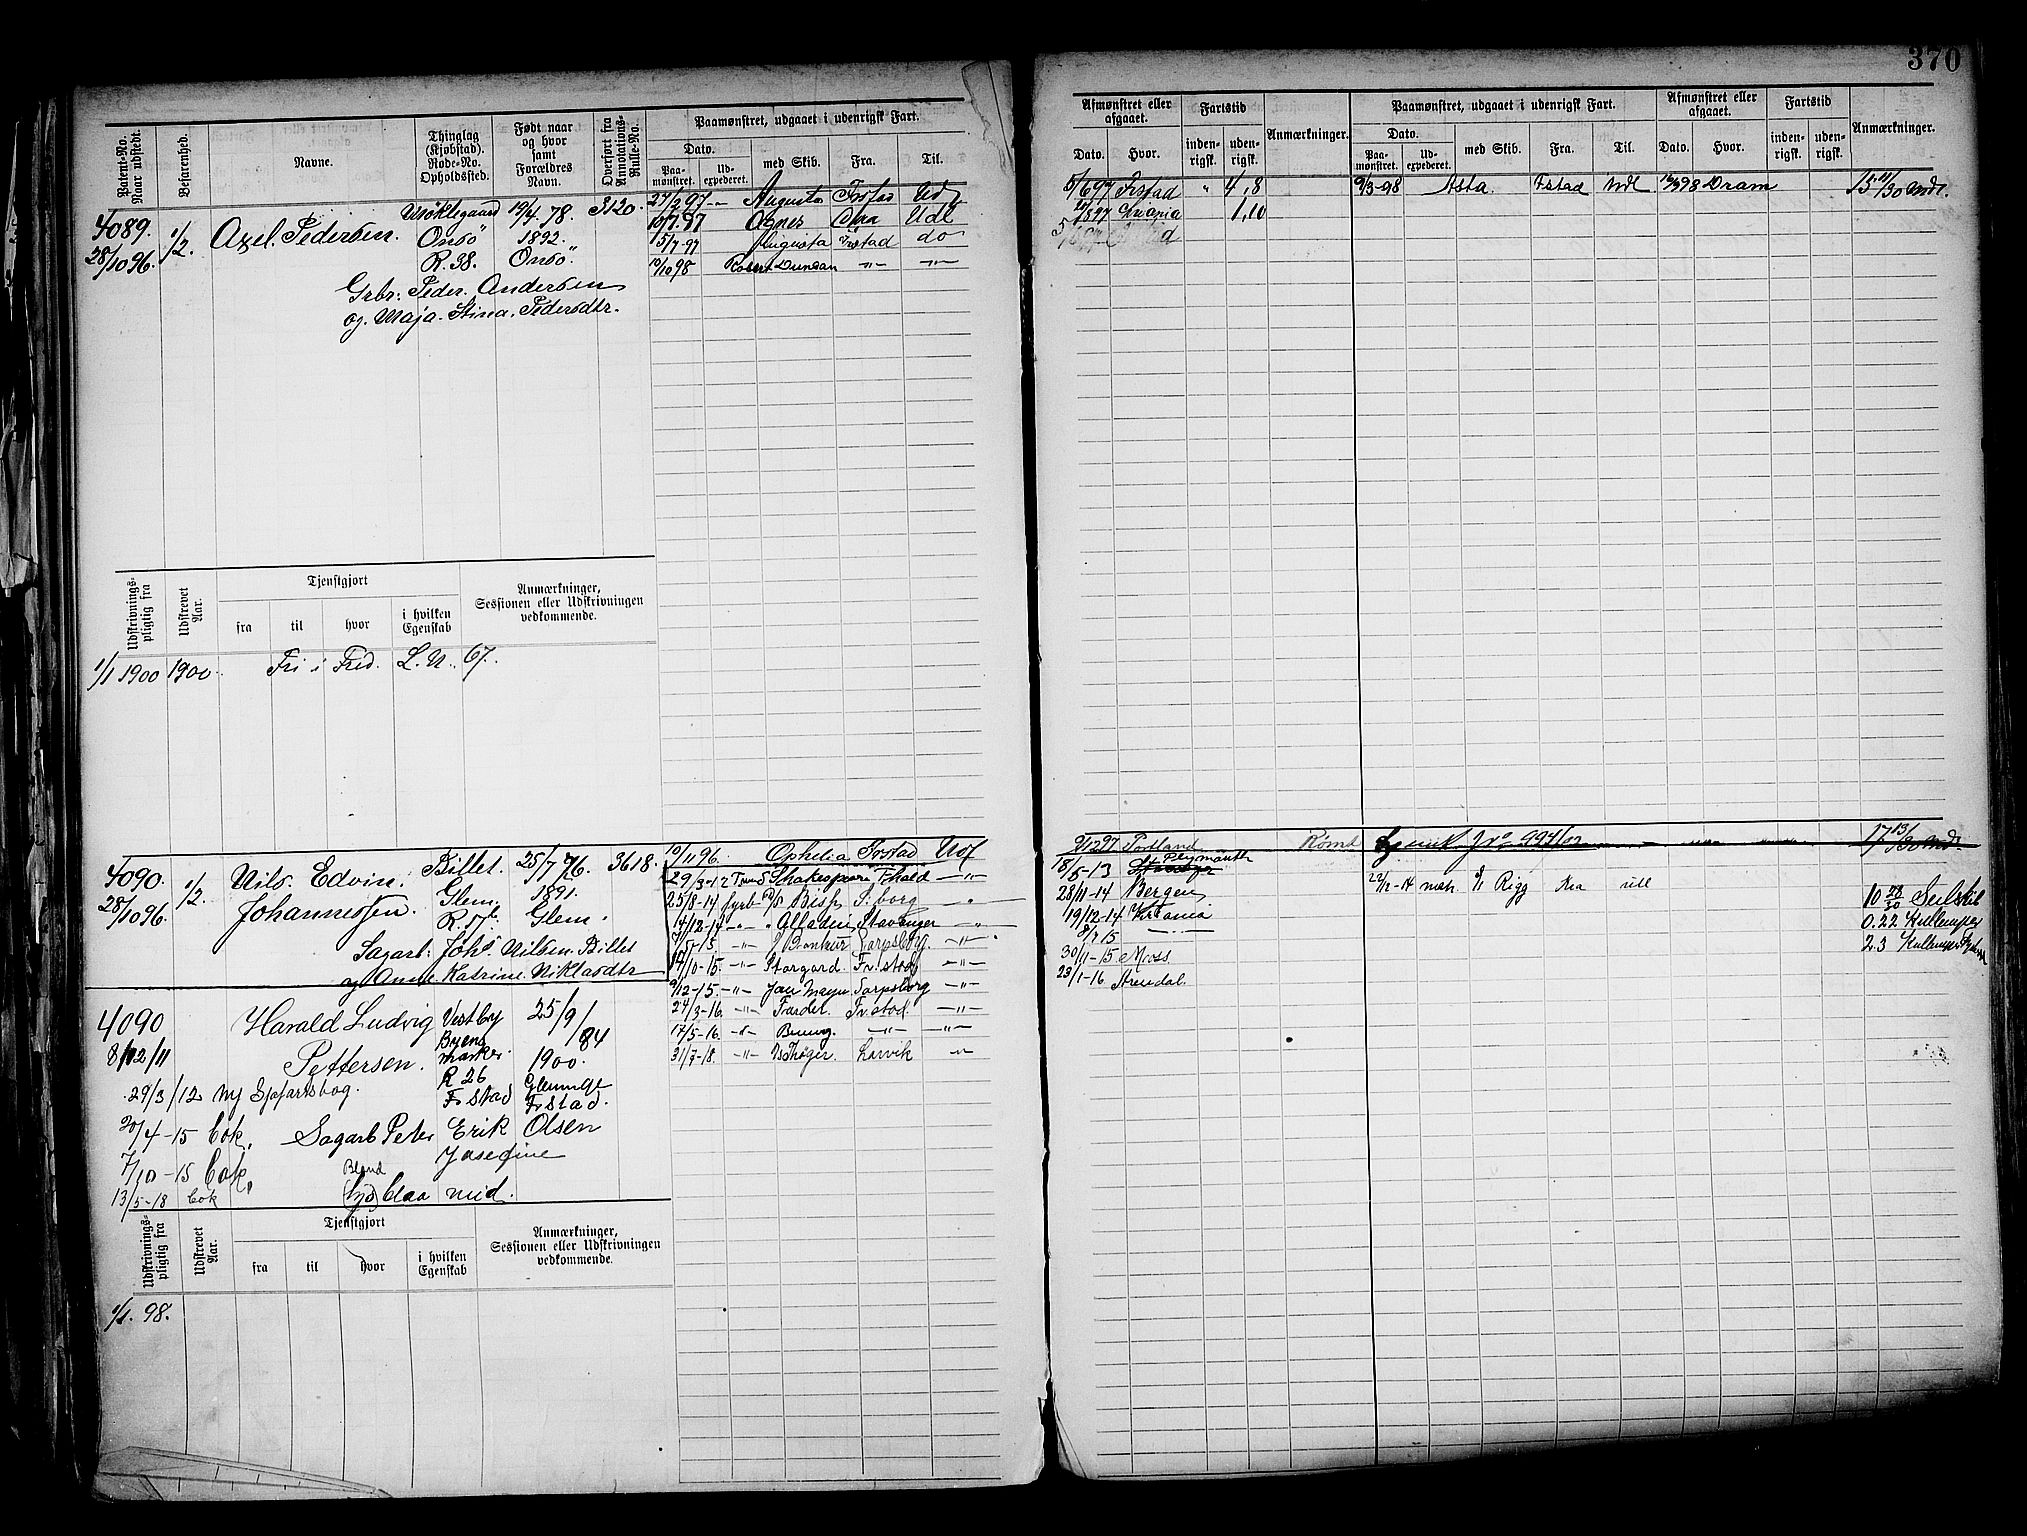 370
Patent-No. Naar udstedt.
Befarenhed.
Navne.
Thinglag (Kjøbstad). Rode-No. Opholdssted.
Født naar og hvor samt Forældres Navn.
Overført fra Annotations-Rulle-No.
Paamønstret, udgaaet i udenrigsk Fart.
Dato.
Paa-mønstret.
Ud-expederet.
med Skib.
Fra.
Til.
4089.
28/10 96.
1/2.
Axel. Pedersen.
Onsö
R. 38.
19/4. 78.
1892.
Onsö.
3120.
Grbr: Peder. Andersen
og. Maja. Stina. Pedersdtr.
27/2 97 Augusta Frstad Ud
10/7. 97 Agnes Udl
15/7-97 Augusta Frstad do
10/10 98 Robert Duncan -"- -"-
Udskrivnings-pligtig fra
Udskrevet Aar.
Tjenstgjort
fra
til
hvor
i hvilken Egenskab
Anmærkninger, Sessionen eller Udskrivningen vedkommende.
1/1 1900 1900. Fri i Fred. L. N. 67.
4090.
28/10 96.
1/2.
Nils. Edvin.
Johannessen.
Billet.
Glem.
R. 17
25/7 76.
1891.
Glem.
3618.
Sagarb: Johs Nilsen. Billet
og Anne Katrine. Niklasdtr
10/11 96. Ophelia Frstad Udl
29/3-12 Shakespeare Fhald -"-
25/8-14 fyrb D/S Bisp S.borg -"-
14/12-14 -"- Alladin Stavanger -"-
7/5-15. -"- Sarpsborg. -"-
17/10-15. -"- Stargard. Fr.stad -"-
9/12-15. -"- Jan Mayn Sarpsborg -"-
24/3-16. -"- Fardel. Fr.stad. -"-
17/5-16. -"- -"- -"-
31/7-18. -"- Larvik -"-
4090
8/12/11
Harald Ludvig
Pettersen.
Vestby
Byens
marker.
R 26
Fr stad
25/9/84
1900.
Glemmige
Fr stad.
29/3/12 ny Sjøfartsbog.
20/4-15 Cok.
Sagarb Peter Erik Olsen
Josefine
7/10-15 Cok.
Blond
lys blaa mid.
13/5-18 Cok
Udskrivnings-pligtig fra
Udskrevet Aar.
Tjenstgjort
fra
til
hvor
i hvilken Egenskab
Anmærkninger, Sessionen eller Udskrivningen vedkommende.
1/1. 98.
Afmønstret eller afgaaet.
Dato.
Hvor.
Fartstid
inden-rigsk.
uden-rigsk.
Anmærkninger.
Paamønstret, udgaaet i udenrigsk Fart.
Dato.
Paa-mønstret.
Ud-expederet.
med Skib.
Fra.
Til.
Afmønstret eller afgaaet.
Dato.
Hvor.
Fartstid
inden-rigsk.
uden-rigsk.
Anmærkninger.
5/6 97 Frstad " 4,8
9/3-98 Asta. Fstad Udl Dram 15 11/30 Mdr.
1,10
9/12 97 Portland Rømt 994/02 17 13/30 Mdr.
18/5-13 Plymouth
28/11-14 Bergen
22/2-14 Rigg
10 28/30 Seilskib
19/12-14 Kr.ania
0.22 Kullemper
8/4 15
2.3 Kullemper
30/11-15 Moss
23/1-16 Arendal.